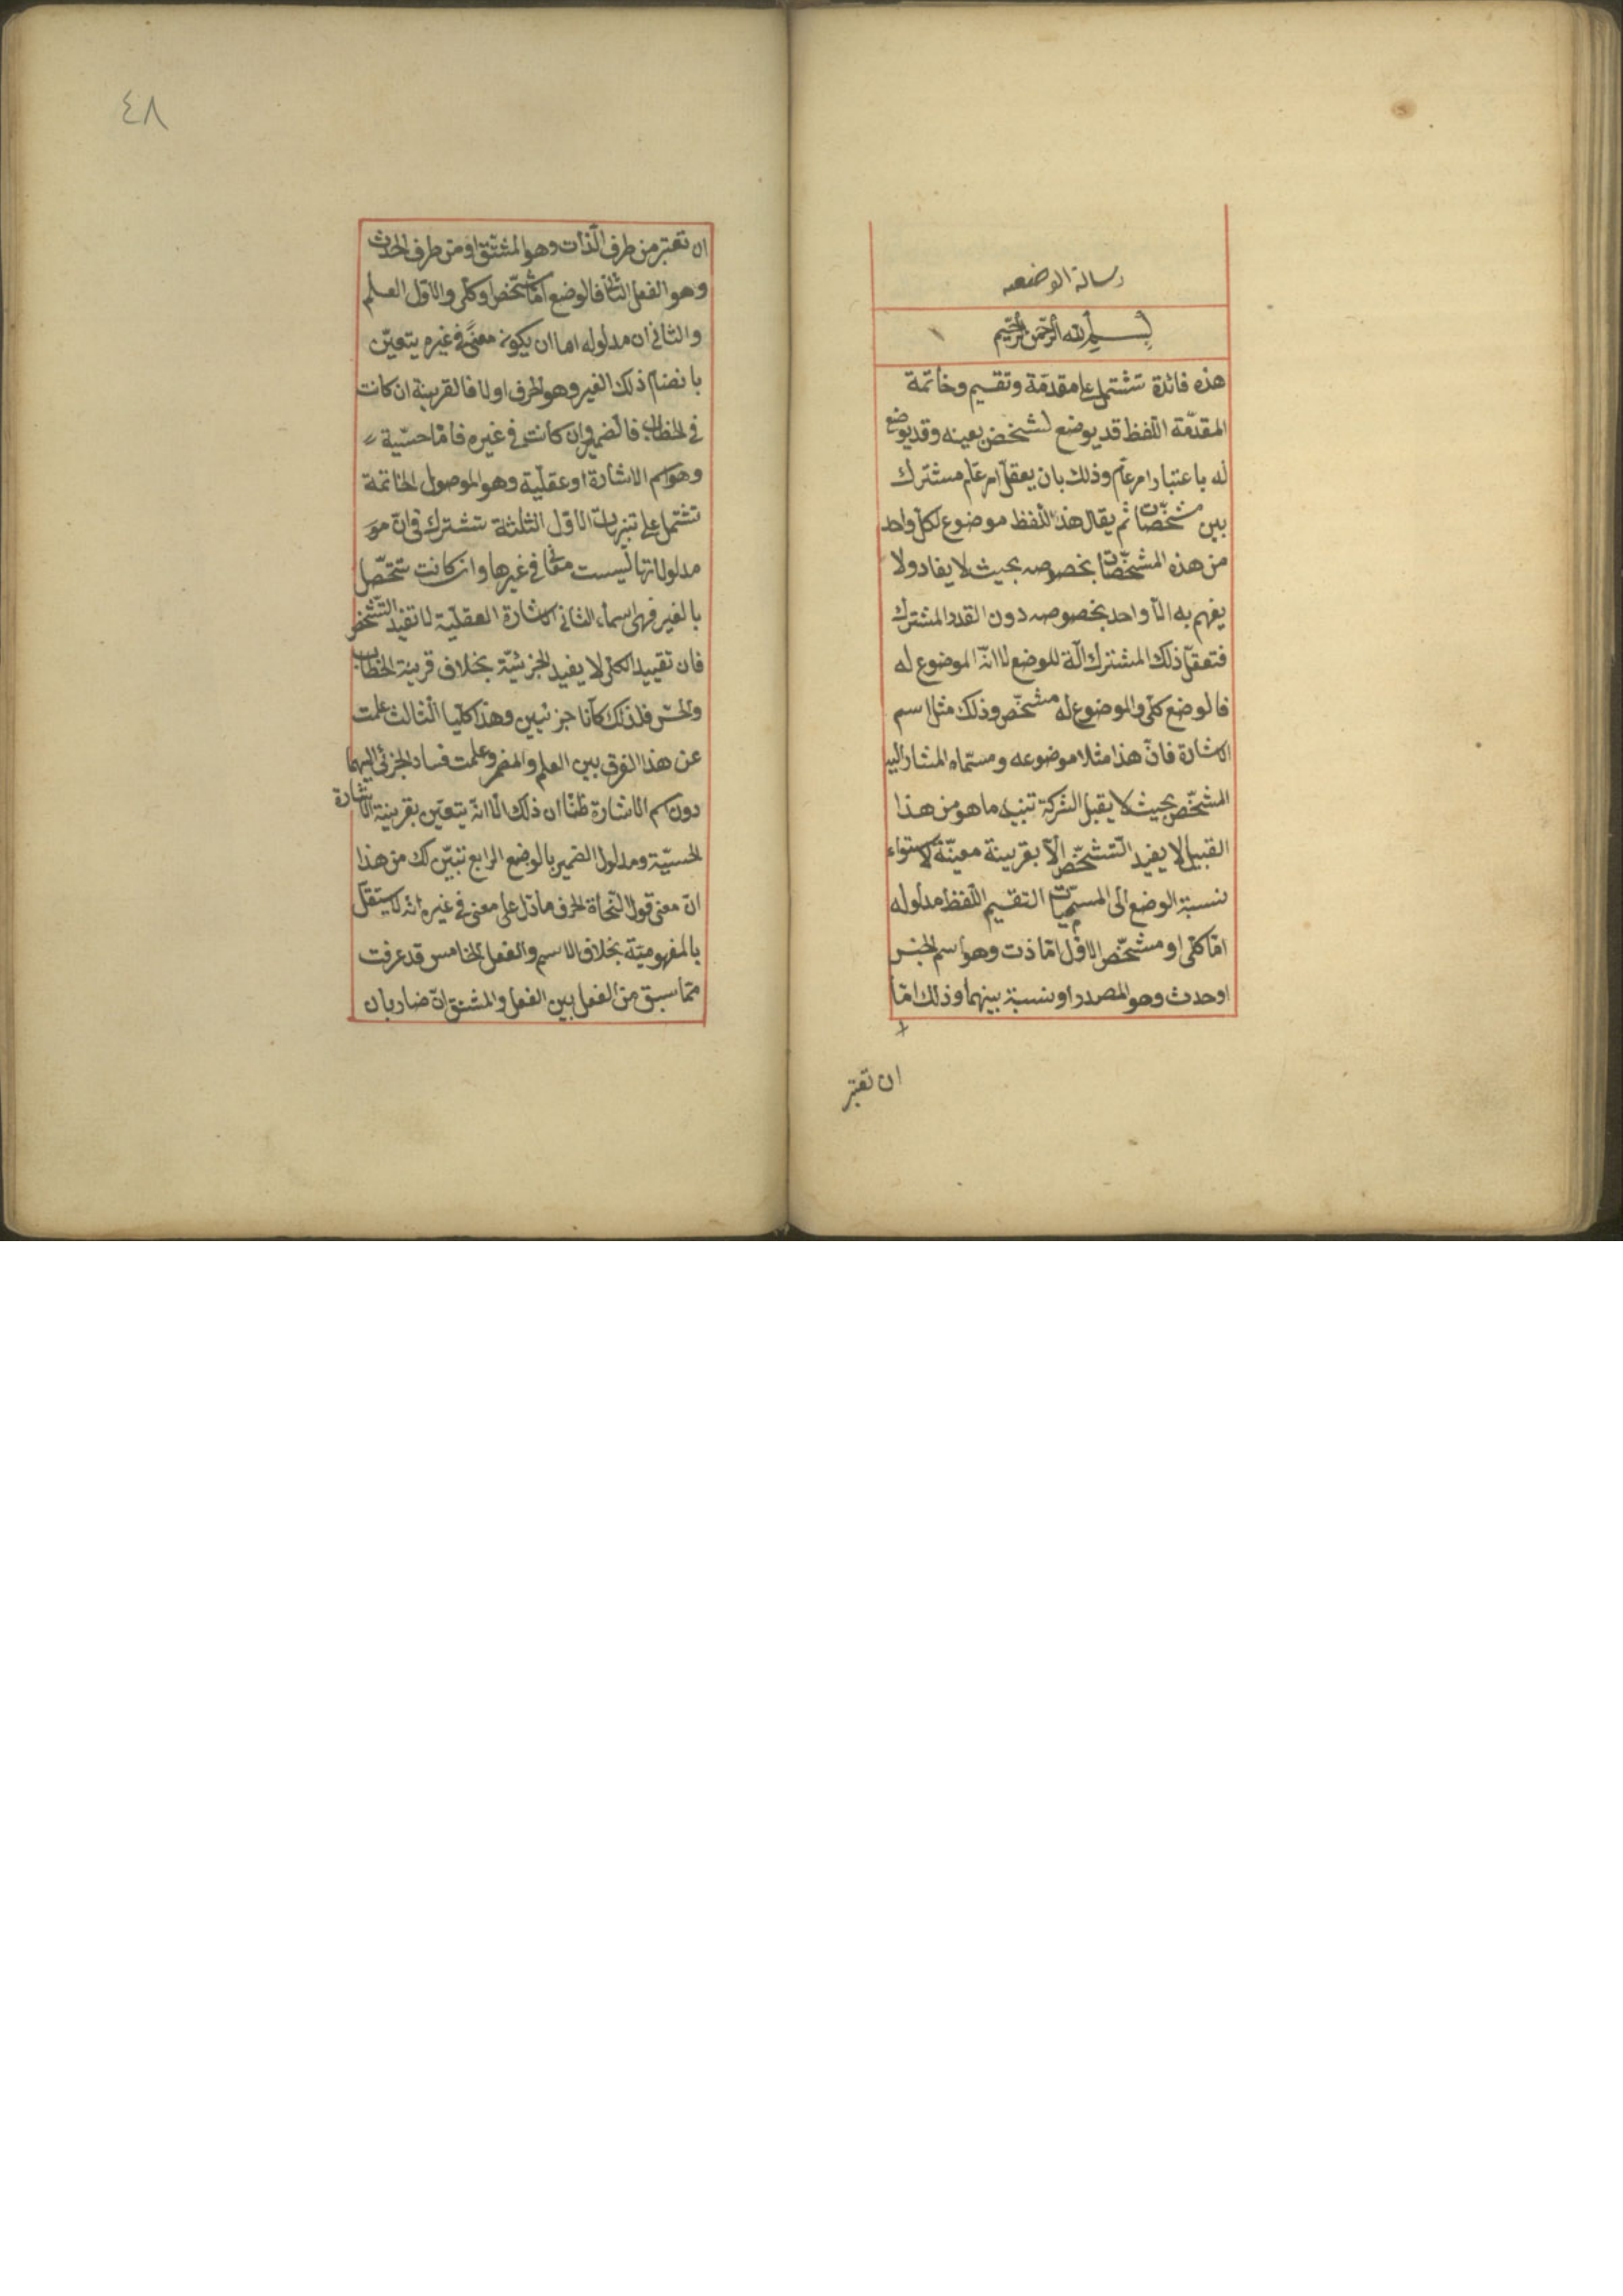 رسالة الوضعيه
بسم الله الرحمن الرحيم
هذه فائدة تشتمل على مقدّمة وتقسيم وخاتمة
المقدّمة اللّفظ قد يوضع لشخص بعينه وقد يوضع
له باعتبار امر عامّ وذلك بان يعقل امر عامّ مشترك
بين مشخّصات ثم يقال هذا اللّفظ موضوع لكلّ واحد
من هذه المشخّصات بخصوصه بحيث لا يفاد ولا
يفهم به الّا واحد بخصوصه دون القدر المشترك
فتعقّل ذلك المشترك آلة للوضع لا انّه الموضوع له
فالوضع كلّى والموضوع له مشخّص وذلك مثل اسم
الاشارة فانّ هذا مثلا موضوعه ومسمّاه المشار اليه
المشخّص بحيث لا يقبل الشركة تنبيه ما هو من هذا
القبيل لا يفيد التّشخّص الّا بقرينة معينّة لاستواء
نسبة الوضع الى المسمّيات التقسيم اللّفظ مدلوله
امّا كلّى او مشخّص الاوّل امّا ذت وهو اسم الجنس
او حدث وهو المصدر او نسبة بينهما وذلك امّا
ان تعتبر
٤٨
ان تعتبر من طرف الذّات وهو المشتق او من طرف الحدث
وهو الفعل الثانى فالوضع امّا مشخّص او كلّى والاوّل العلم
والثانى ان مدلوله اما ان يكون معنًى فى غيره يتعيّن
بانضام ذلك الغير وهو الحرف اولا فالقرينة ان كانت
فى الخطاب فالضمير وان كانت فى غيره فامّا حسّية
وهو اسم الاشارة او عقليّة وهو الموصول الخاتمة
تشتمل على تنبيهات الاوّل الثلثة تشترك فى انّ
مدلولاتها ليست معانى فى غيرها وان كانت تتحصّل
بالغير فهى اسماء الثانى الاشارة العقليّة لا تفيد التّشخّص
فان تقييد الكلّى لا يفيد الجزئيّة بخلاف قرينة الخطاب
والحسّ فلذلك كانا جزئيين وهذا كلّيا الثالث علمت
عن هذا الفرق بين العلم والمضمر وعلمت فساد الجزئى اليهما
دون اسم الاشارة ظنّا ان ذلك الّا انّه يتعيّن بقرينة الاشارة
الحسيّة ومدلول الضمير بالوضع الرابع تبيّن لك من هذا
انّ معنى قول النّحاة الحرف ما دلّ على معنى فى غيره انّه لا يستقلّ
بالمفهوميّة بخلاف الاسم والفعل الخامس قد عرفت
ممّا سبق من الفعل بين الفعل والمشتق انّ ضاربا ن